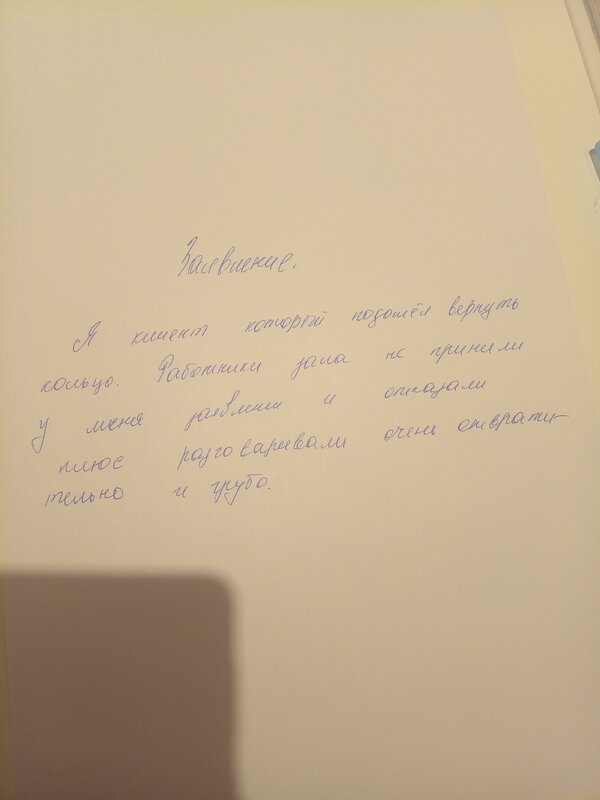 Заявление.
Я клиент который подошёл вернуть
кольцо. Работники зала не приняли
у меня заявлени и отказали
плюс разговаривали очень отврати-
тельно и грубо.